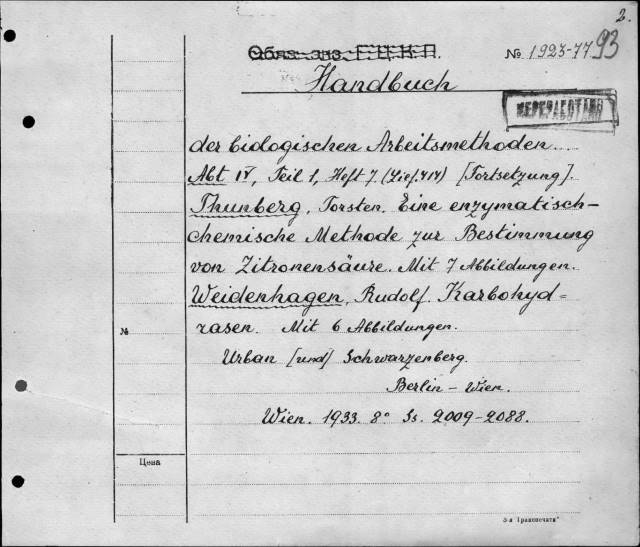 2.
Обяз. экз. Г.Ц.К.П.
№ 1923-77
93
Handbuch
ПЕРЕРАБОТАНО
der biologischen Arbeitsmethoden...
Abt IV, Teil 1, Heft 7 (Lief. 414) [Fortsetzung].
Thunberg, Torsten. Eine enzymatisch-
chemische Methode zur Bestimmung
von Zitronensäure. Mit 7 Abbildungen.
Weidenhagen, Rudolf. Karbohyd=
rasen. Mit 6 Abbildungen.
№
Urban [und] Schwarzenberg.
Berlin - Wien.
Wien. 1933. 8° Ss. 2009-2088.
Цена
3-я "Транспечати"